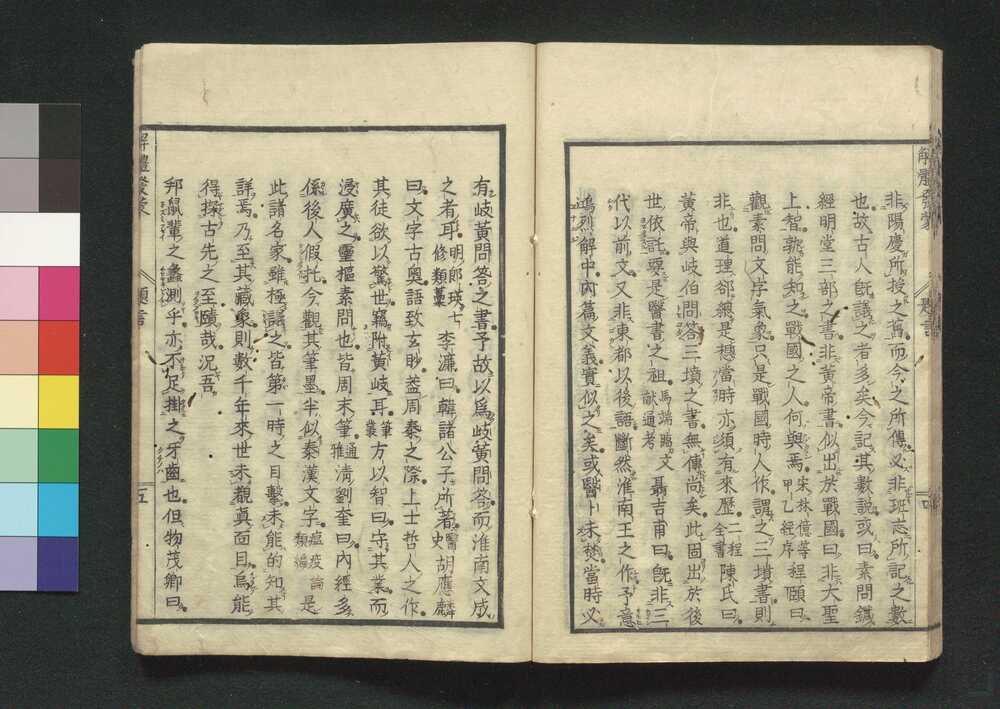 非陽慶所授之舊而今之所傳必非班志所記之數
也故古人既議之者多矣今記其數說或曰素問鍼
經明堂三部之書非黃帝書似出於戰國曰非大聖
上智孰能知之戰國之人何與焉宋林億等甲乙經序程頤曰
觀素問文字氣象只是戰國時人作謂之三墳書則
非也道理却總是想當時亦須有來歷二程全書陳氏曰
黃帝與岐伯問答三墳之書無傳尚矣此固出於後
世依託要是醫書之祖馬端臨文獻通考聶吉甫曰既非三
代以前文又非東都以後語斷然淮南王之作予意
鴻烈解中內篇文義實似之矣或醫卜未焚當時必
解體發蒙
題言
四
有岐黃問答之書予故以爲岐黃問答而淮南文成
之者耳明郎瑛七修類藁李濂曰韓諸公子所著醫史胡應麟
曰文字古奥語致玄眇蓋周秦之際上士哲人之作
其徒欲以驚世竊附黃岐耳筆叢方以智曰守其業而
浸廣之靈樞素問也皆周末筆通雅淸劉奎曰內經多
係後人假托今觀其筆墨半似秦漢文字瘟疫論類編是
此諸名家雖極詩之皆第一時之目擊未能的知其
詳焉乃至其藏象則數千年來世未觀眞面目烏能
得探古先之至賾哉況吾
邦鼠輩之蠡測乎亦不足掛之牙齒也但物茂卿曰
解體發蒙
題言
五